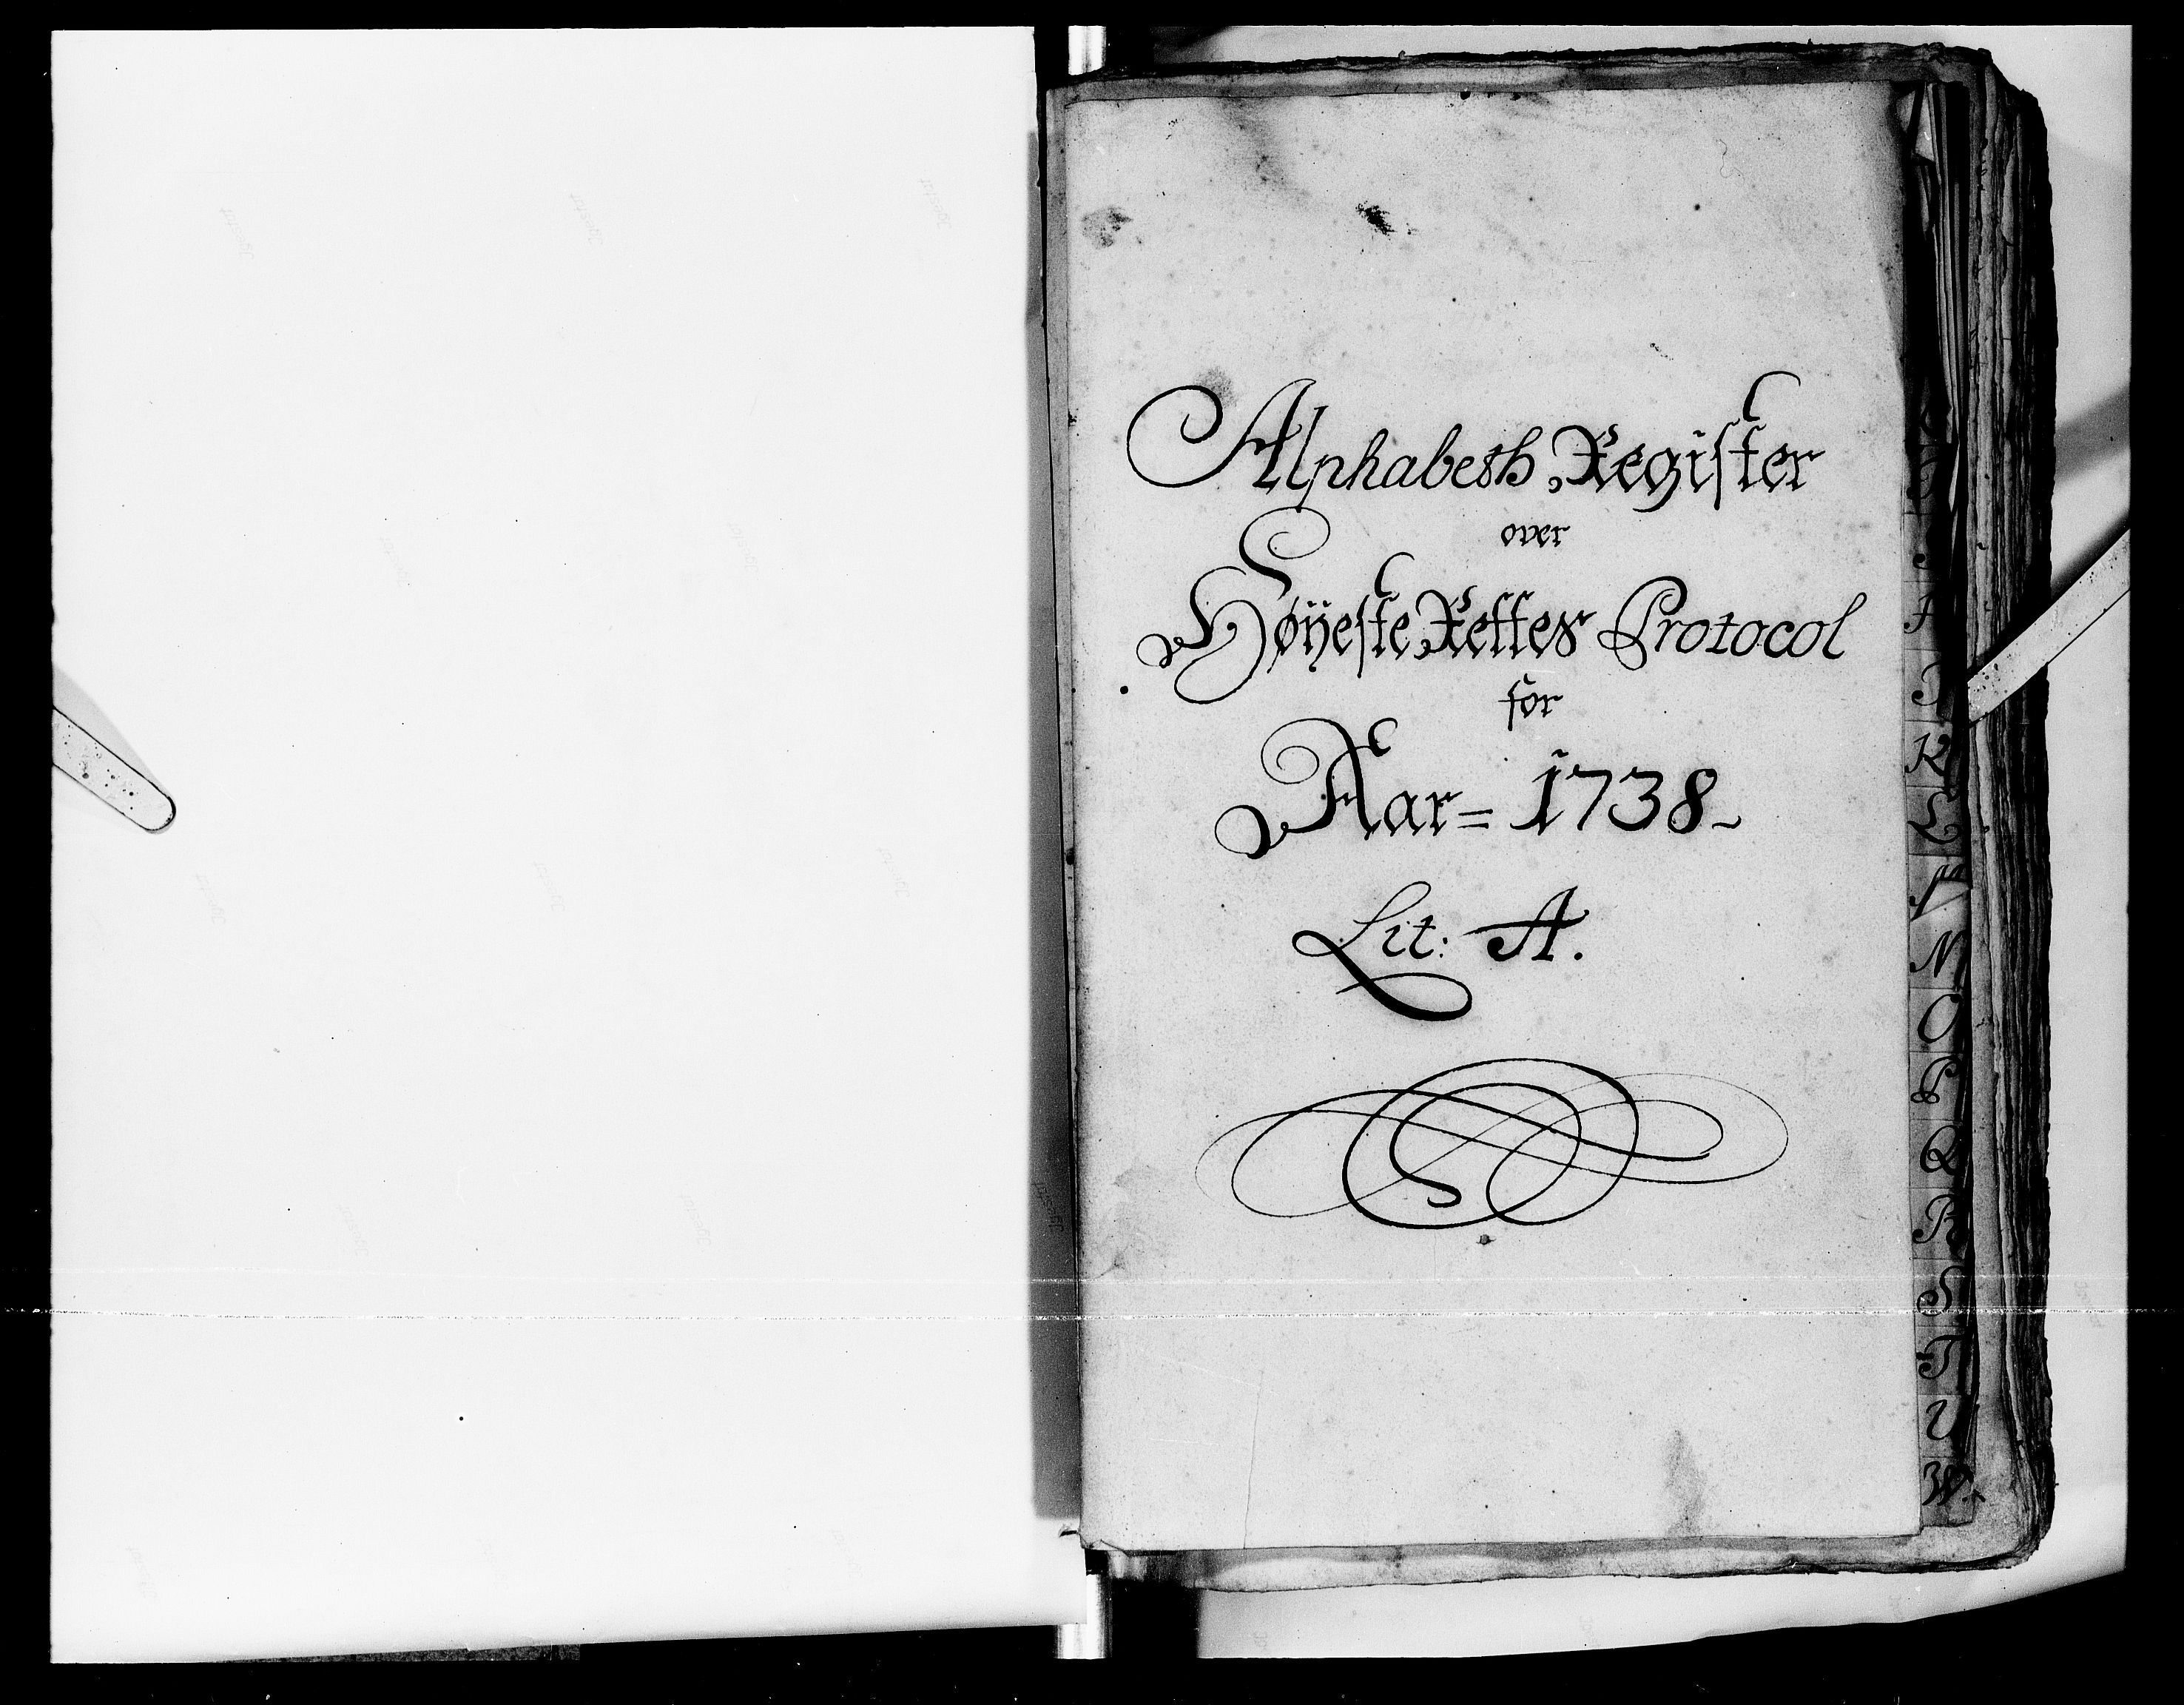 Alphabeth Register
over
Høÿeste Rettes Protocol
for
Aar= 1738-
Lit: A.
K
L
M
N
O
P
Q
R
S
T
V
W.